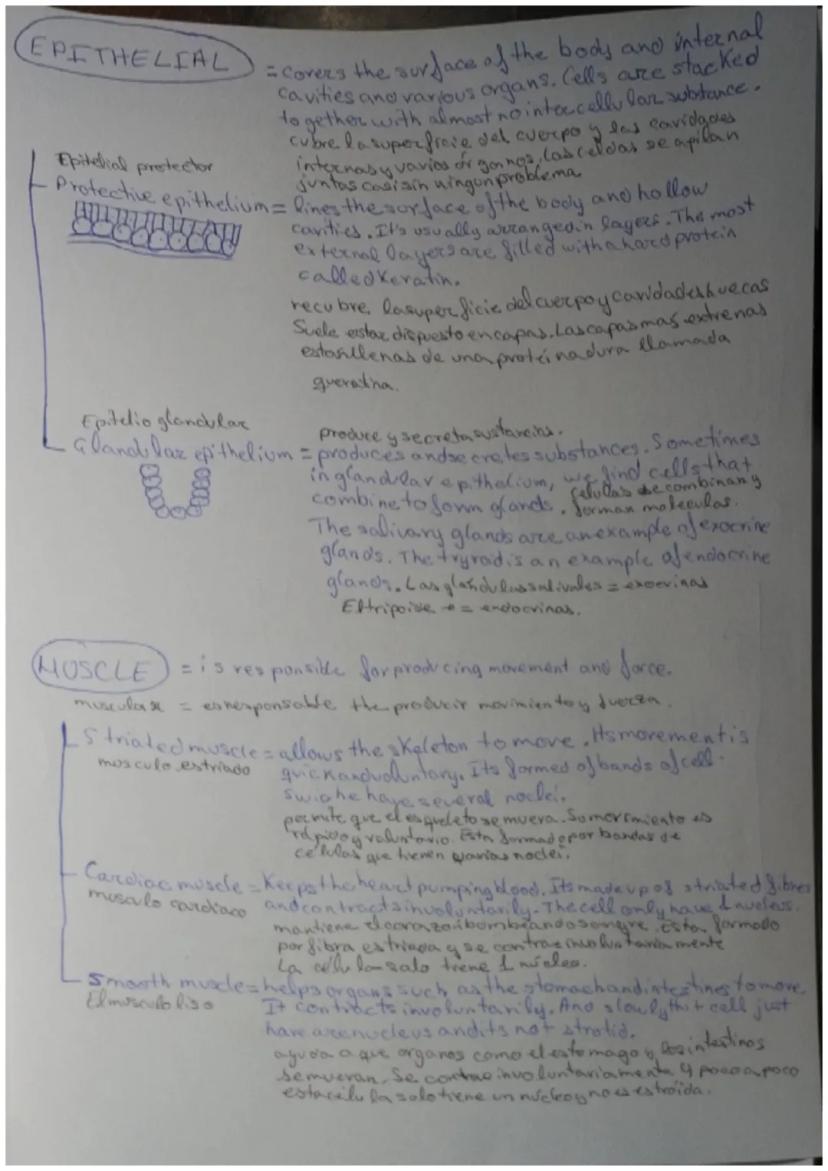 EPITHELIAL = covers the surface of the body and internal
cavities and various organs. Cells are stacked
together with almost no intercellular substance.
cubre la superficie del cuerpo y las cavidades
internas y varios órganos, las celdas se apilan
juntas casi sin ningun problema
Epitelial protector
Protective epithelium = lines the surface of the body and hollow
cavities. It's usually arranged in layers. The most
external layers are filled with a hard protein
called Keratin.
recubre la superficie del cuerpo y cavidades huecas
Suele estar dispuesto en capas. Las capas mas extrenas
estan llenas de una proteina dura llamada
queratina.
Epitelio glandular
produce y secreta sustancias.
Glandular epithelium = produces and secretes substances. Sometimes
in glandular epithelium, we find cells that
combine to form glands. celulas se combinan y
forman moleculas.
The salivary glands are an example of exocrine
glands. The tryroid is an example of endocrine
glands. Las glandulas salivales = exocrinas
El = endocrinas.
MUSCLE = is responsible for producing movement and force.
muscular = es responsable the producir movimiento y fuerza.
Striated muscle = allows the skeleton to move. Its movement is
musculo estriado quick and voluntary. Its formed of bands of cell
have several noclei.
permite que el esqueleto se mueva. Su movimiento es
rápido y voluntario. Esta formado por bandas de
celulas que tienen varias noclei.
Cardiac muscle = Keeps the heart pumping blood. Its made up of striated fibres
musculo cardiaco and contracts involuntarily. The cell only have 1 nucleus.
mantiene el corazon bombeando sangre. Esta formado
por fibra estriada y se contrae involuntariamente
La célula solo tiene 1 núcleo.
Smooth muscle = helps organs such as the stomach and intestines to move.
El musculo liso It contracts involuntarily. And slowly thit cell just
have are nucleus and its not strotid.
ayuda a que organos como el estomago y los intestinos
se muevan. Se contrae involuntariamente y poco a poco
esta celula solo tiene un nucleo y no es estroida.